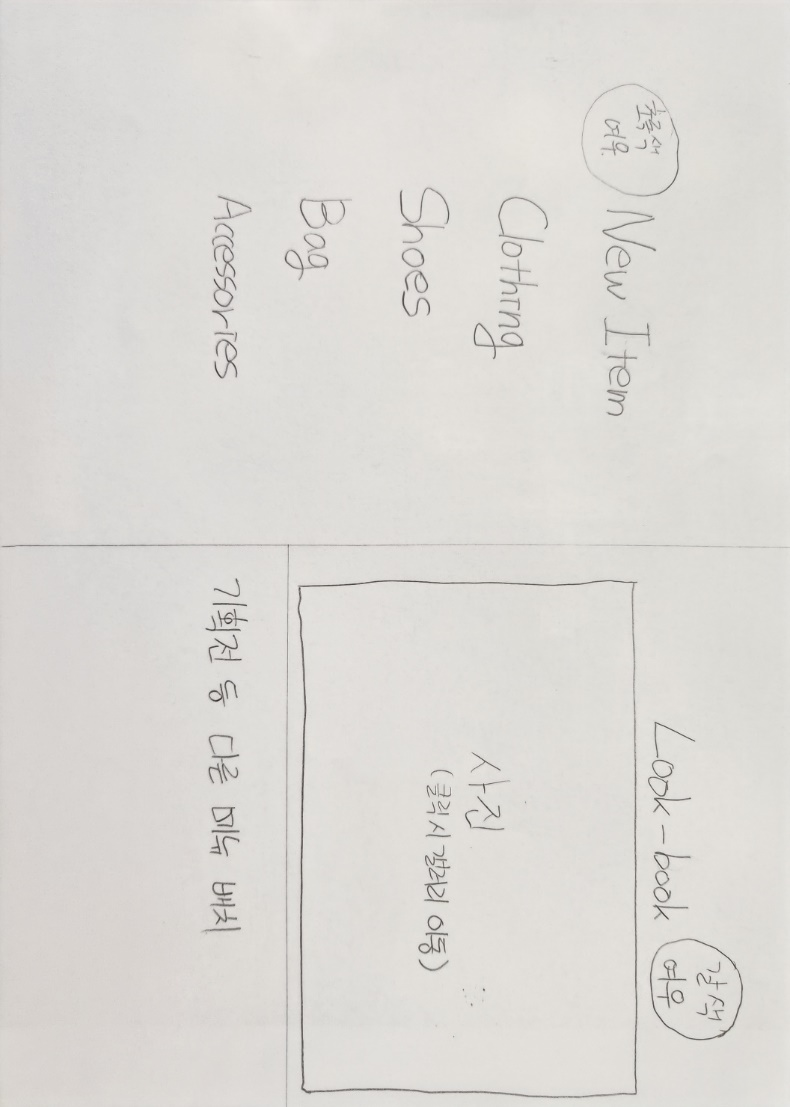 초록색
여우
New Item
Clothing
Shoes
Bag
Accessories
Look-book
갈색
여우
사진
(클릭시 갤러리 이동)
기획전 등 다른 메뉴 배치